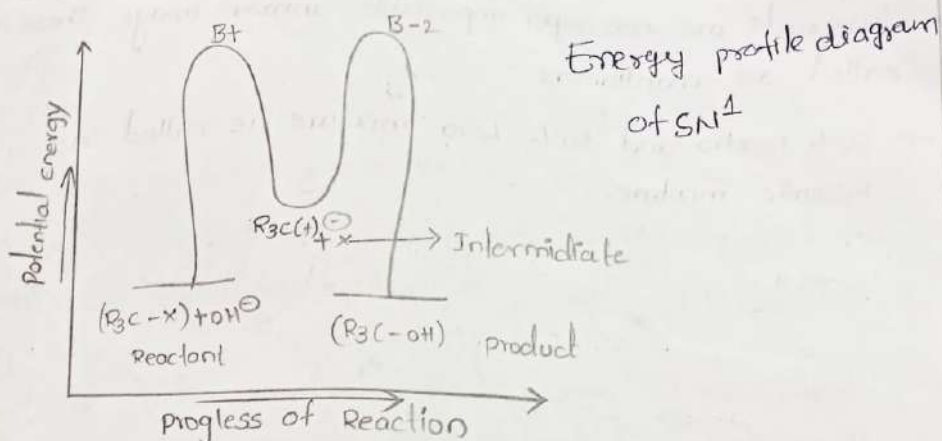 B+
B-2
Energy profile diagram
of SN1
Potential energy
R3C(+) + x⊖
Intermidiate
(R3C-X)+OH⊖
Reactant
(R3C-OH) product
Progless of Reaction